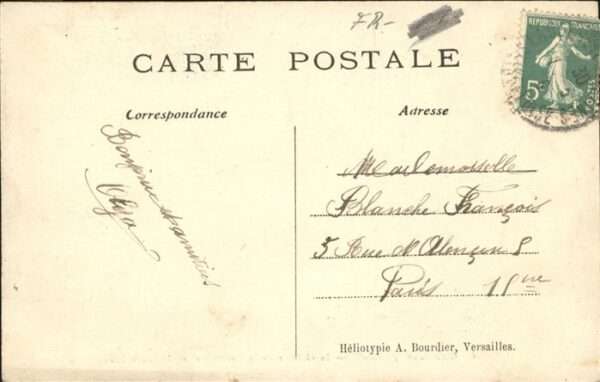 FR-
CARTE POSTALE
REPUBLIQUE FRANCAISE
5c
POSTES
Correspondance
Adresse
Bonjour et amitiés
Olga
Mademoiselle
Blanche François
5 Rue d'Alençon 5
Paris 15me
Héliotypie A. Bourdier, Versailles.